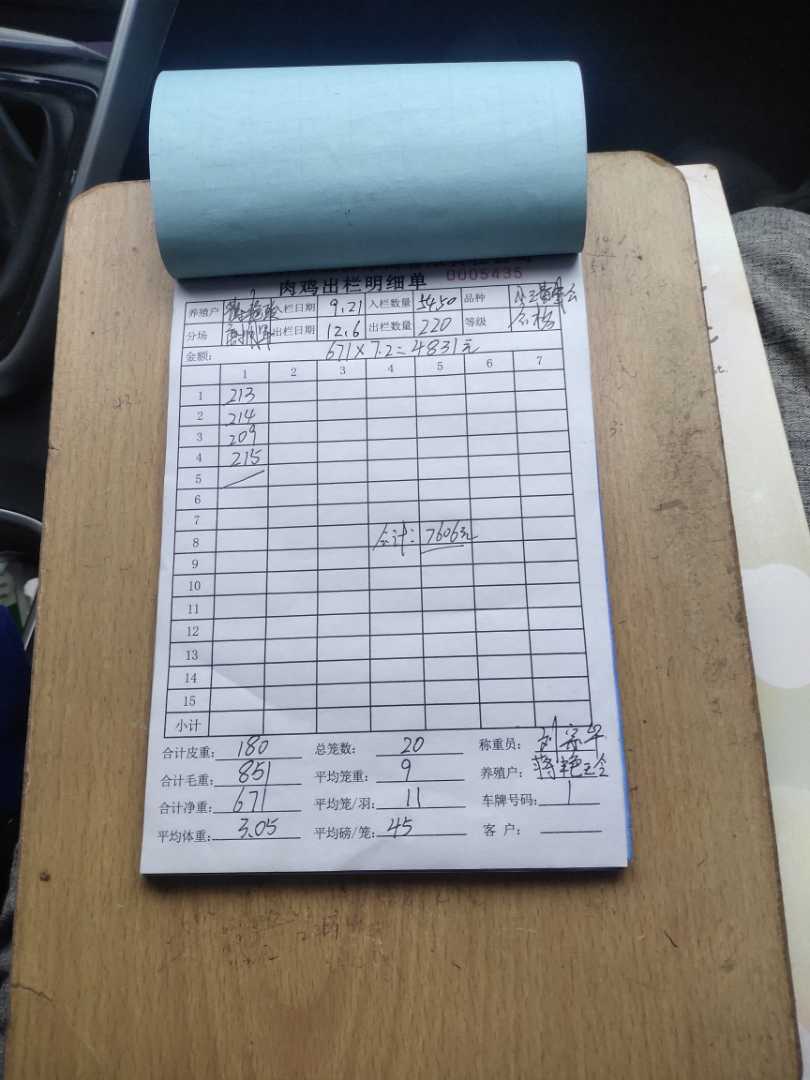 0005435
肉鸡出栏明细单
养殖户 入栏日期 9.21 入栏数量 5450 品种
分场 出栏日期 12.6 出栏数量 220 等级 合格
金额: 671×7.2=4831元
1 2 3 4 5 6 7
1 213
2 214
3 209
4 215
5
6
7
8 合计:7606元
9
10
11
12
13
14
15
小计
合计皮重: 180 总笼数: 20 称重员:
合计毛重: 851 平均笼重: 9 养殖户:
合计净重: 671 平均笼/羽: 11 车牌号码:
平均体重: 3.05 平均磅/笼: 45 客户: